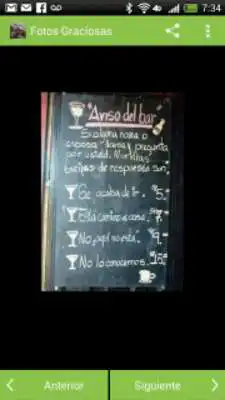 7:34
Fotos Graciosas
"Aviso del bar"
Si alguna novia o
esposa llama y pregunta
por usted. Nuestras
tarifas de respuesta son:
Se acaba de ir. $5.-
Está camino a casa. $7.-
No, aquí no está. $9.-
No lo conocemos. $15.-
Anterior
Siguiente